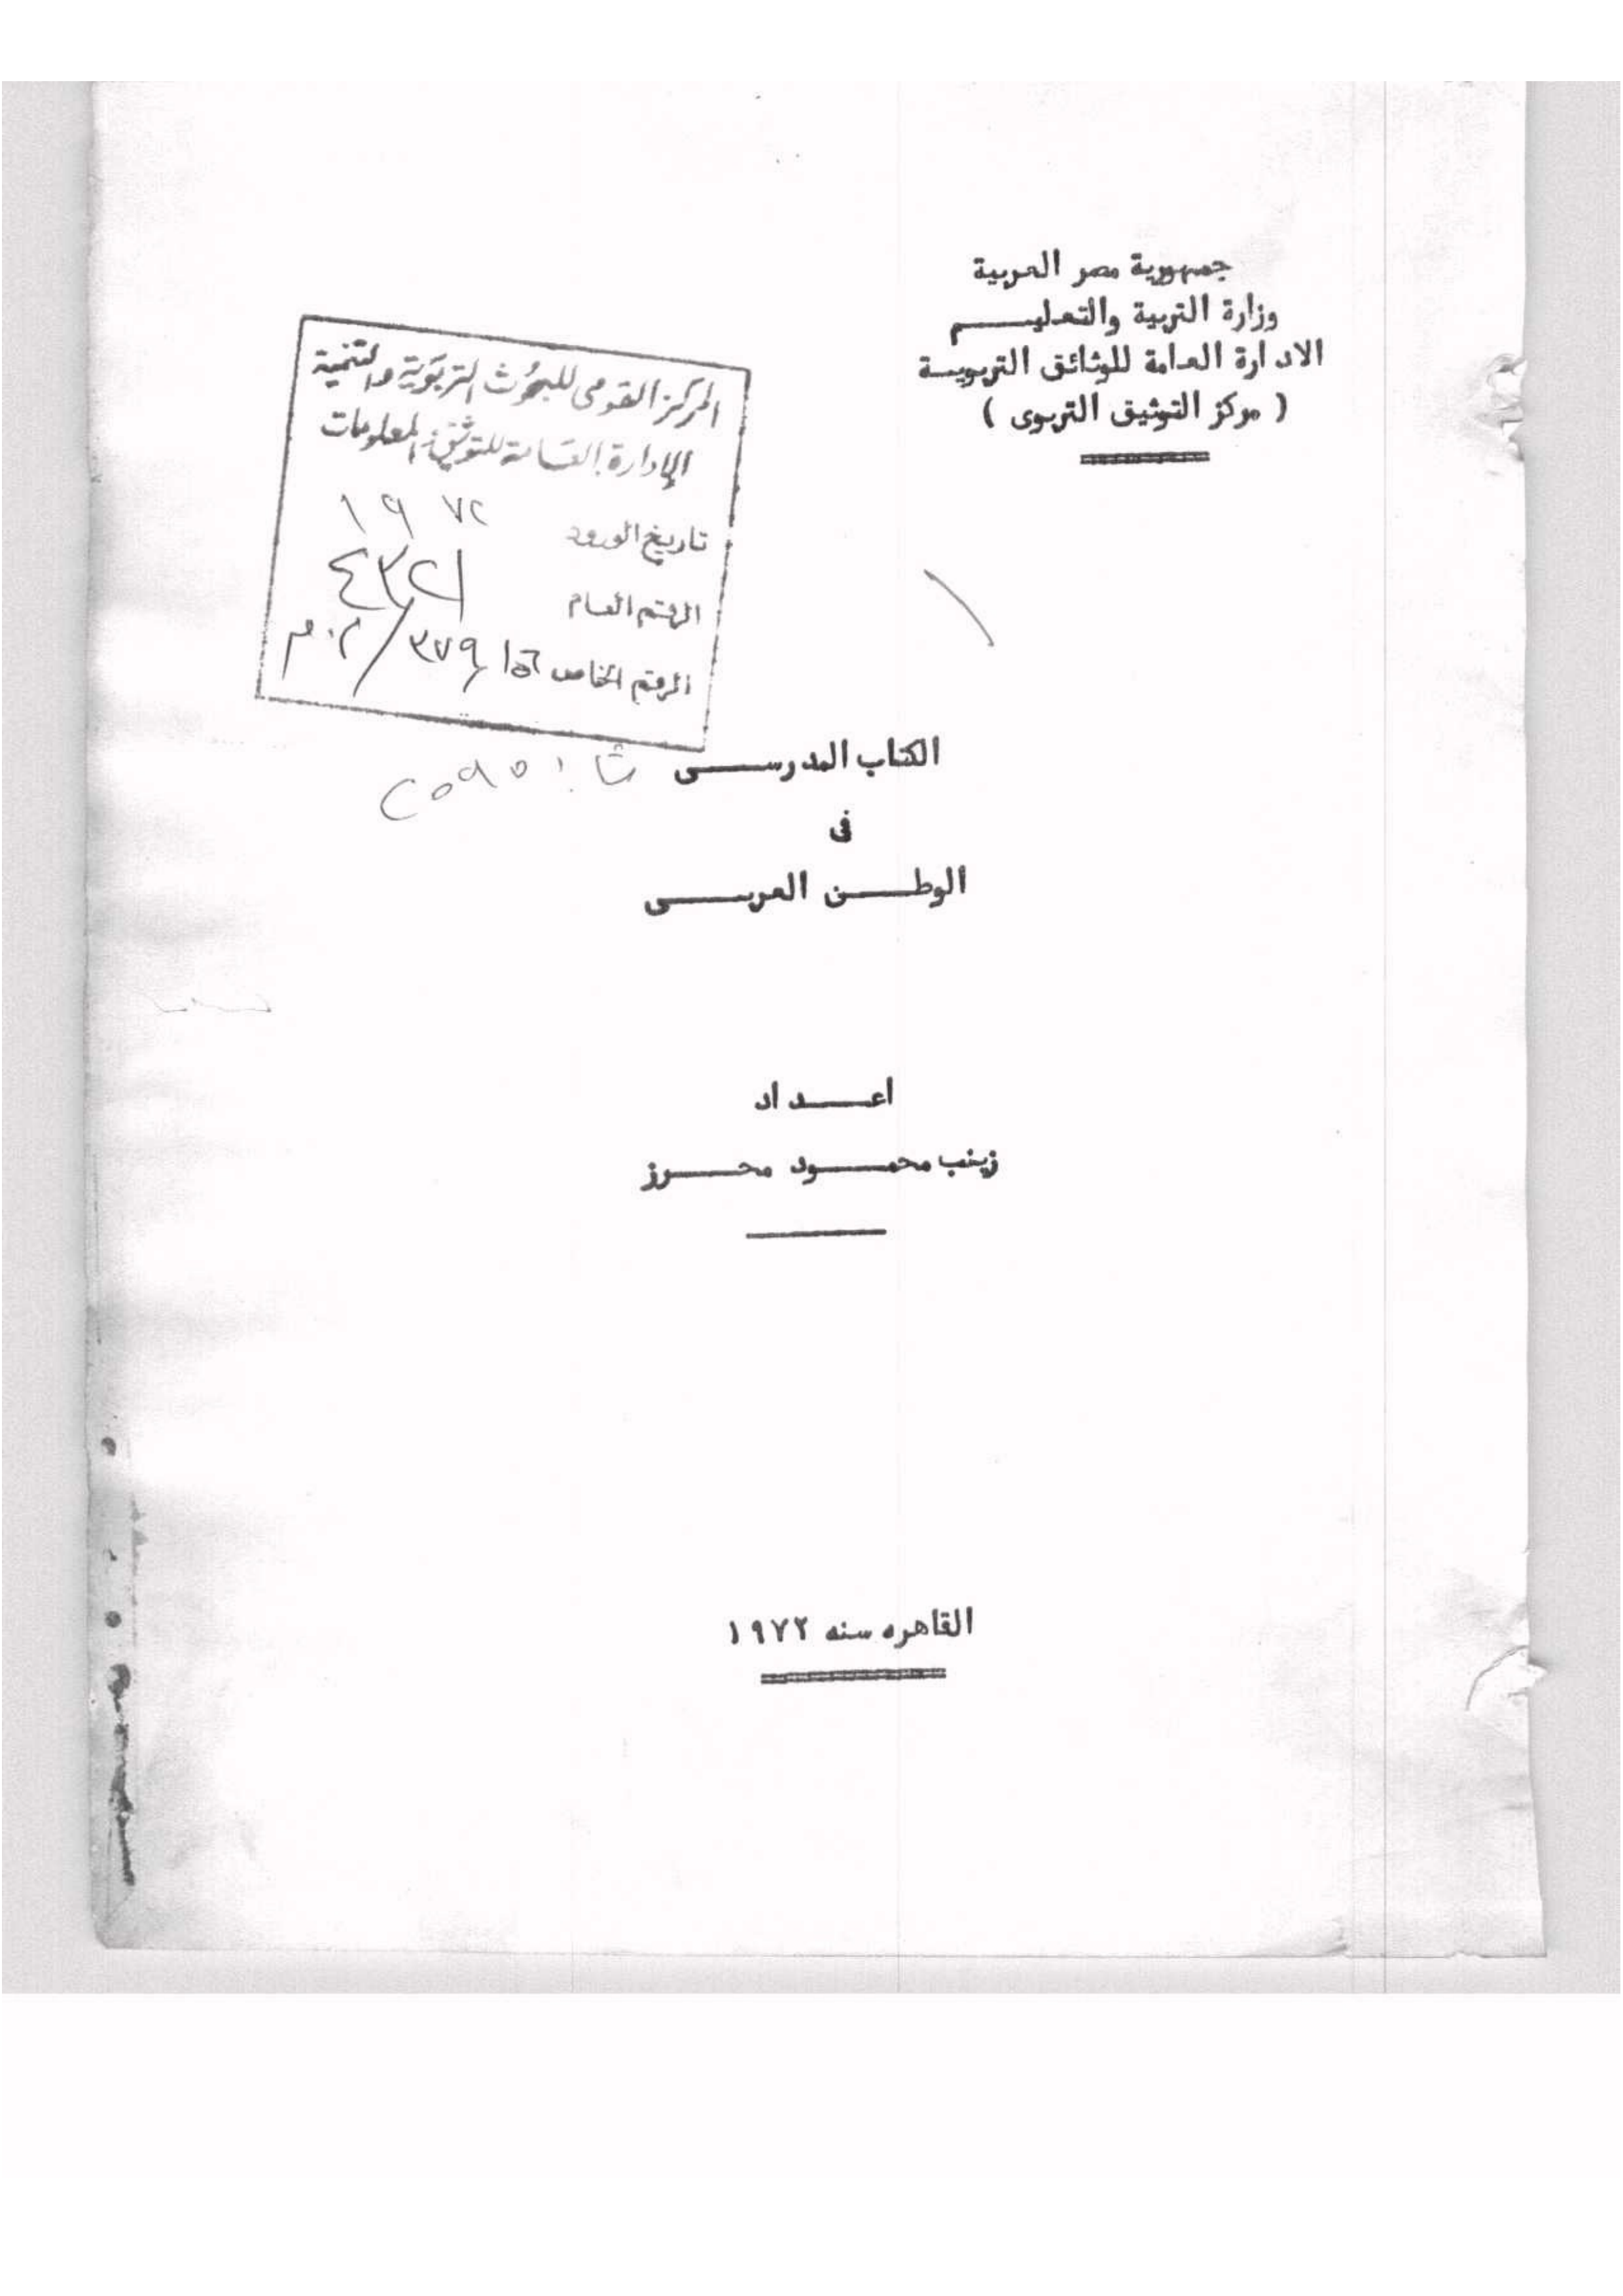 جمهورية مصر العربية
وزارة التربية والتعليم
الادارة العامة للوثائق التربوية
( مركز التوثيق التربوى )
المركز القومى للبحوث التربوية والتنمية
الإدارة العامة للتوثيق والمعلومات
تاريخ الورود ١٩٧٢
الرقم العام ٤٣٢١
الرقم الخاص
الكتاب المدرسى
فى
الوطن العربى
اعداد
زينب محمود محرز
القاهره سنه ١٩٧٢